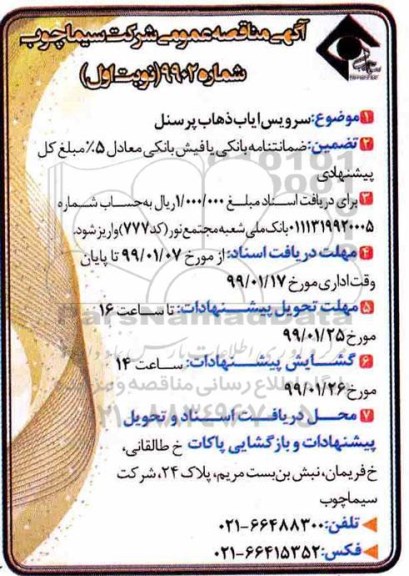 آگهی مناقصه عمومی شرکت سیماچوب
شماره ۹۹۰۲ (نوبت اول)
۱ موضوع: سرویس ایاب ذهاب پرسنل
۲ تضمین: ضمانتنامه بانکی یا فیش بانکی معادل ۵٪ مبلغ کل
پیشنهادی
۳ برای دریافت اسناد مبلغ ۱/۰۰۰/۰۰۰ ریال به حساب شماره
۰۱۱۱۳۱۹۹۲۰۰۰۵ بانک ملی شعبه مجتمع نور (کد ۷۷۷) واریز شود.
۴ مهلت دریافت اسناد: از مورخ ۹۹/۰۱/۰۷ تا پایان
وقت اداری مورخ ۹۹/۰۱/۱۷
۵ مهلت تحویل پیشنهادات: تا ساعت ۱۶
مورخ ۹۹/۰۱/۲۵
۶ گشایش پیشنهادات: ساعت ۱۴
مورخ ۹۹/۰۱/۲۶
۷ محل دریافت اسناد و تحویل
پیشنهادات و بازگشایی پاکات خ طالقانی،
خ فریمان، نبش بن بست مریم، پلاک ۲۴، شرکت
سیماچوب
تلفن: ۶۶۴۸۸۳۰۰-۰۲۱
فکس: ۶۶۴۱۵۳۵۲-۰۲۱
ParsNamadData